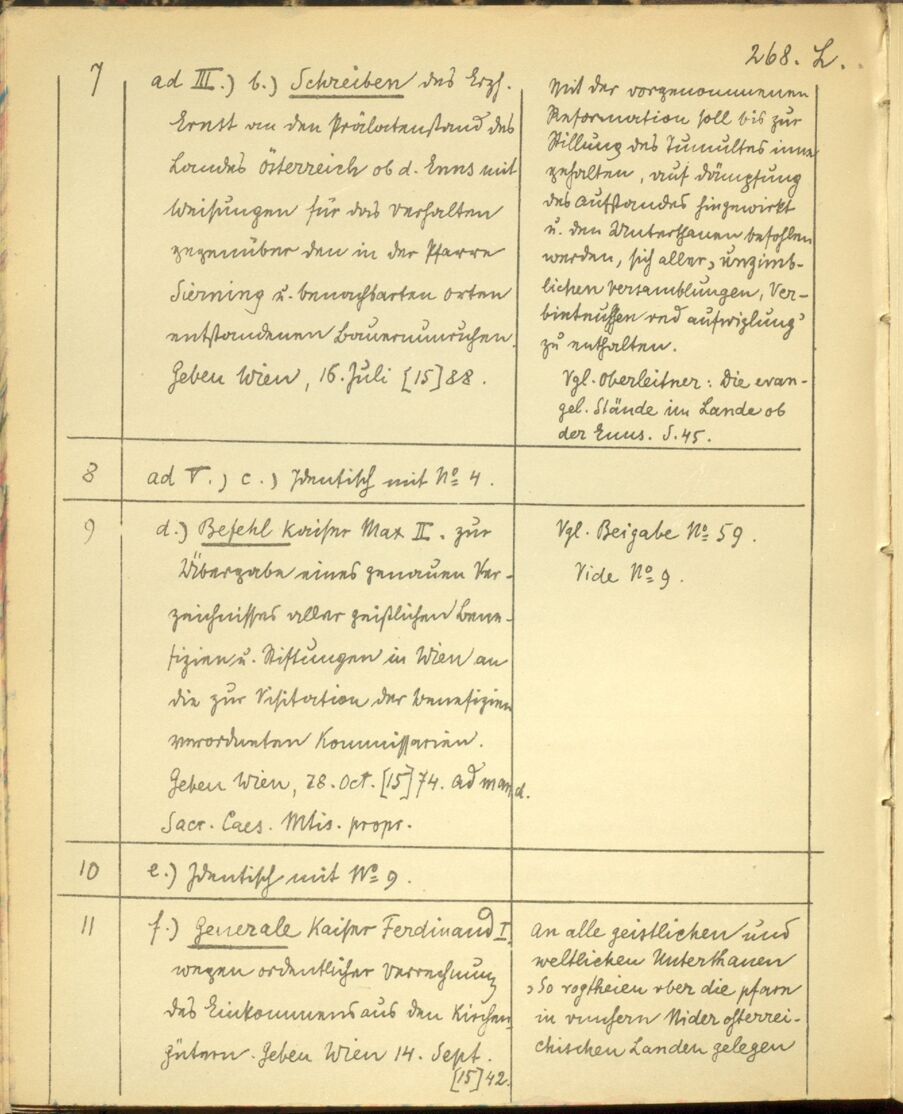 268. L.
7
ad III.) b.) Schreiben des Erzh.
Ernst an den Prälatenstand des
Landes Österreich ob d. Enns mit
Weisungen für das Verhalten
gegenüber den in der Pfarre
Sierning u. benachbarten Orten
entstandenen Bauernunruhen.
Geben Wien, 16. Juli [15]88.
Mit der vorgenommenen
Reformation soll bis zur
Stillung des Tumultes inne
gehalten, auf Dämpfung
des Aufstandes hingewirkt
u. den Unterthanen befohlen
werden, sich aller „unzimb-
lichen Versamblungen, Ver-
bintnussen vnd aufwiglung“
zu enthalten.
Vgl. Oberleitner: Die evan-
gel. Stände im Lande ob
der Enns. S. 45.
8
ad V.) c.) Identisch mit No 4.
9
d.) Befehl Kaiser Max II. zur
Übergabe eines genauen Ver-
zeichnisses aller geistlichen Bene-
fizien u. Stiftungen in Wien an
die zur Visitation der Benefizien
verordneten Kommissarien.
Geben Wien, 28. Oct. [15]74. Ad mand.
Sacr. Caes. Mtis. propr.
Vgl. Beigabe No 59.
Vide No 9.
10
e.) Identisch mit No 9.
11
f.) Generale Kaiser Ferdinand I.
wegen ordentlicher Verrechnung
des Einkommens aus den Kirchen-
gütern. Geben Wien 14. Sept.
[15]42.
An alle geistlichen und
weltlichen Unterthanen
„So vogtheien vber die pfarn
in vnnsern Nider österrei-
chischen Landen gelegen